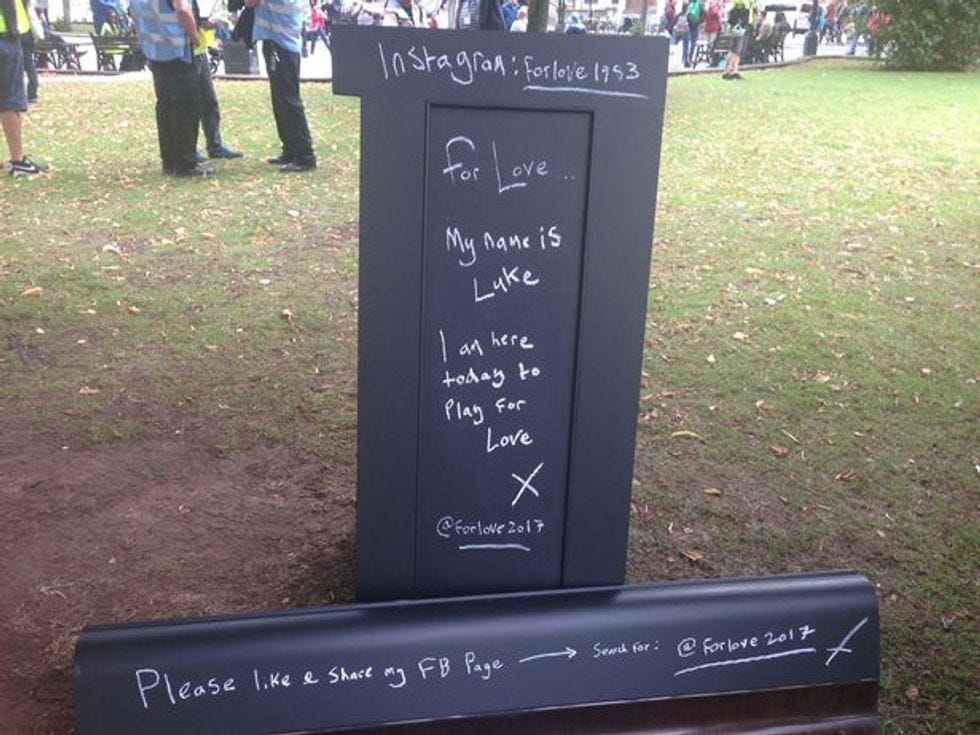 Instagram: Forlove1983
For Love...
My name is
Luke
I am here
today to
Play for
Love
X
@Forlove2017
Please like & share my FB Page → Search for: @Forlove2017 X